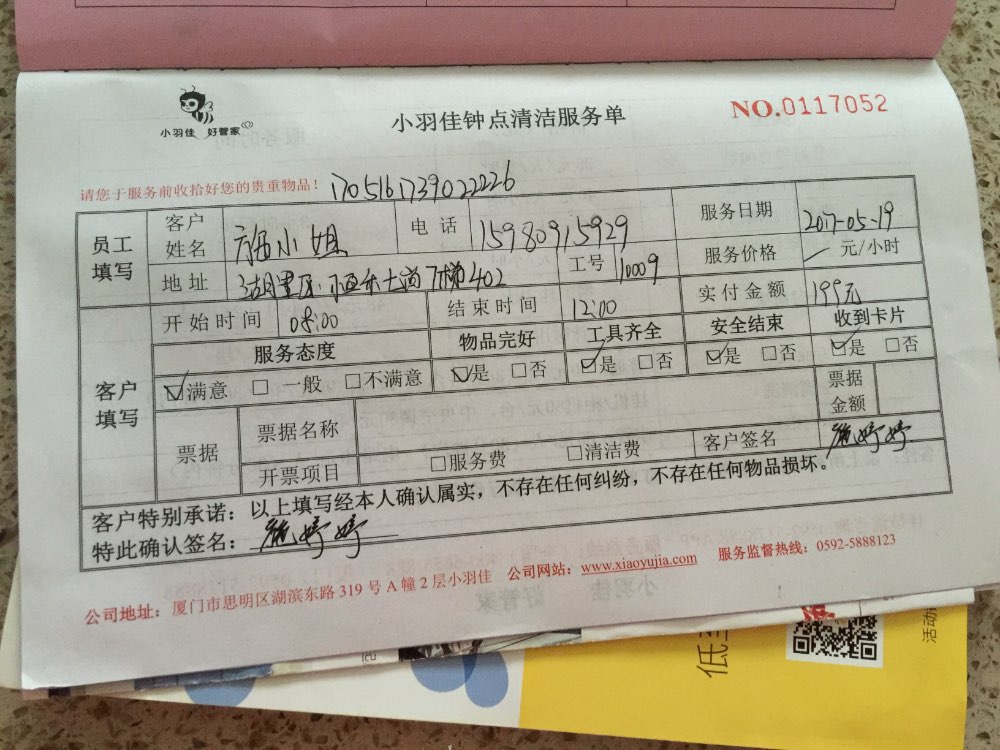 小羽佳 好管家
小羽佳钟点清洁服务单
NO.0117052
请您于服务前收拾好您的贵重物品！ 170516173902222​6
员工填写 客户姓名 施小姐 电话 15980915929 服务日期 2017-05-19
地址 工号 10009 服务价格 元/小时
7梯402
客户填写 开始时间 08:00 结束时间 12:00 实付金额 199元
服务态度 物品完好 工具齐全 安全结束 收到卡片
☑满意 □一般 □不满意 ☑是 □否 ☑是 □否 ☑是 □否 ☑是 □否
票据 票据名称 票据金额
开票项目 □服务费 □清洁费 客户签名 施婷婷
客户特别承诺：以上填写经本人确认属实，不存在任何纠纷，不存在任何物品损坏。
特此确认签名： 施婷婷
公司地址：厦门市思明区湖滨东路319号A幢2层小羽佳 公司网站：www.xiaoyujia.com 服务监督热线：0592-5888123
活动